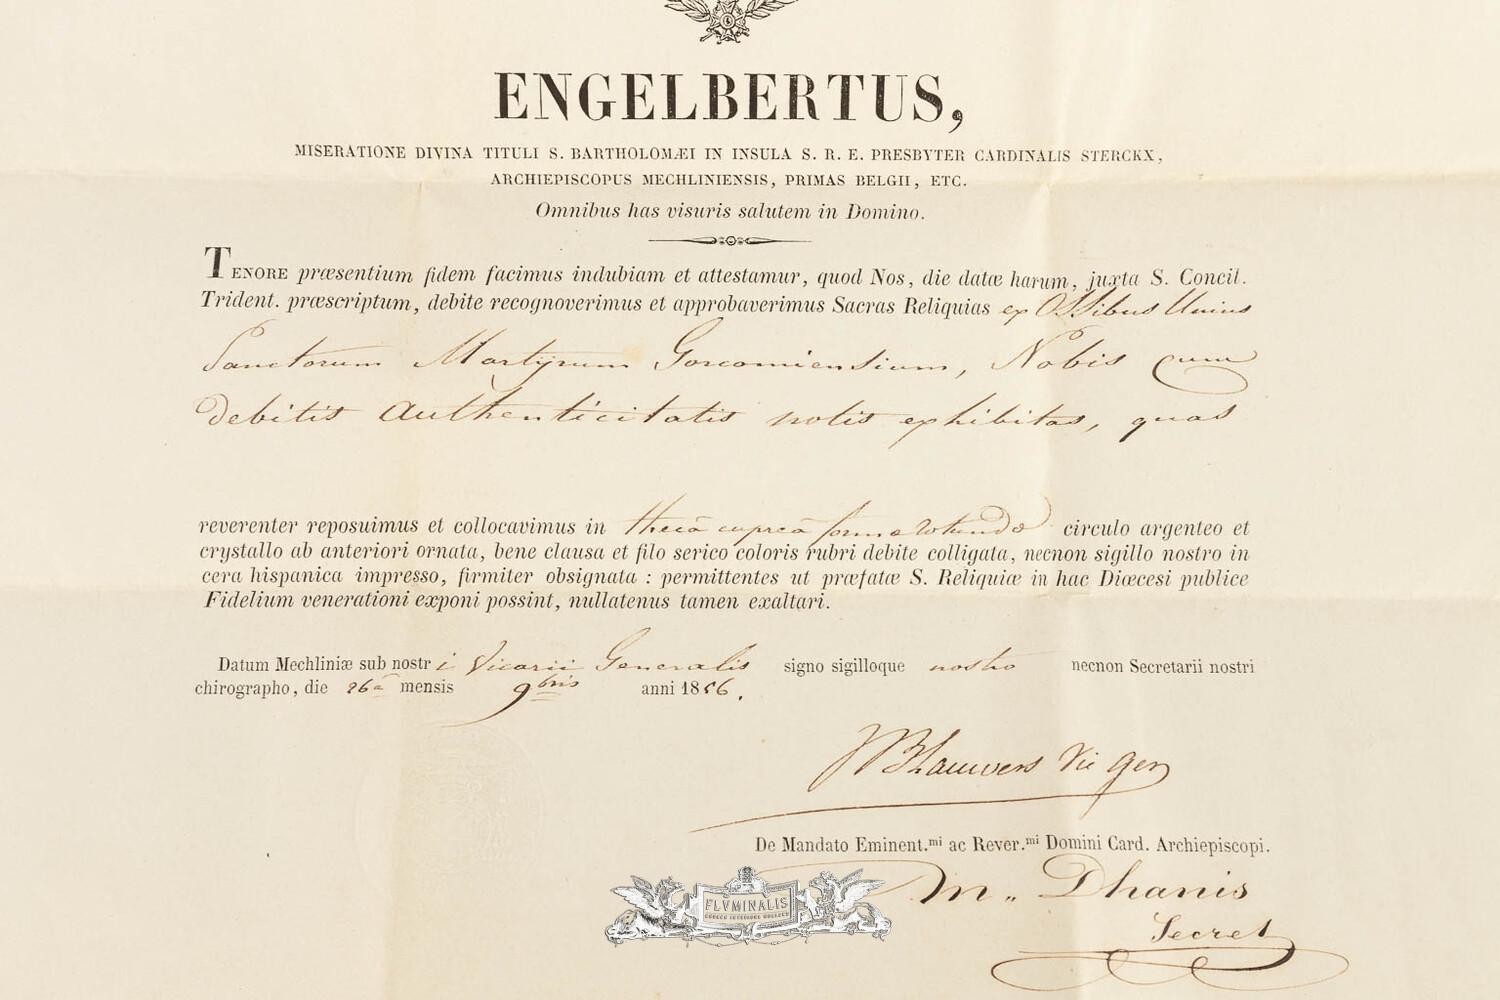 ENGELBERTUS,
MISERATIONE DIVINA TITULI S. BARTHOLOMÆI IN INSULA S. R. E. PRESBYTER CARDINALIS STERCKX,
ARCHIEPISCOPUS MECHLINIENSIS, PRIMAS BELGII, ETC.
Omnibus has visuris salutem in Domino.
TENORE præsentium fidem facimus indubiam et attestamur, quod Nos, die datæ harum, juxta S. Concil.
Trident. præscriptum, debite recognoverimus et approbaverimus Sacras Reliquias ex Ossibus Unius
Sanctorum Martyrum Gorcomiensium, Nobis cum
debitis authenticitatis notis exhibitas, quas
reverenter reposuimus et collocavimus in thecâ cupreâ formæ rotundæ circulo argenteo et
crystallo ab anteriori ornata, bene clausa et filo serico coloris rubri debite colligata, necnon sigillo nostro in
cera hispanica impresso, firmiter obsignata : permittentes ut præfatæ S. Reliquiæ in hac Diœcesi publice
Fidelium venerationi exponi possint, nullatenus tamen exaltari.
Datum Mechliniæ sub nostri Vicarii Generalis signo sigilloque nostro necnon Secretarii nostri
chirographo, die 26â mensis 9bris anni 1856.
Lauwers Vic gen
De Mandato Eminent.mi ac Rever.mi Domini Card. Archiepiscopi.
M. Dhanis
Secret
FLVMINALIS